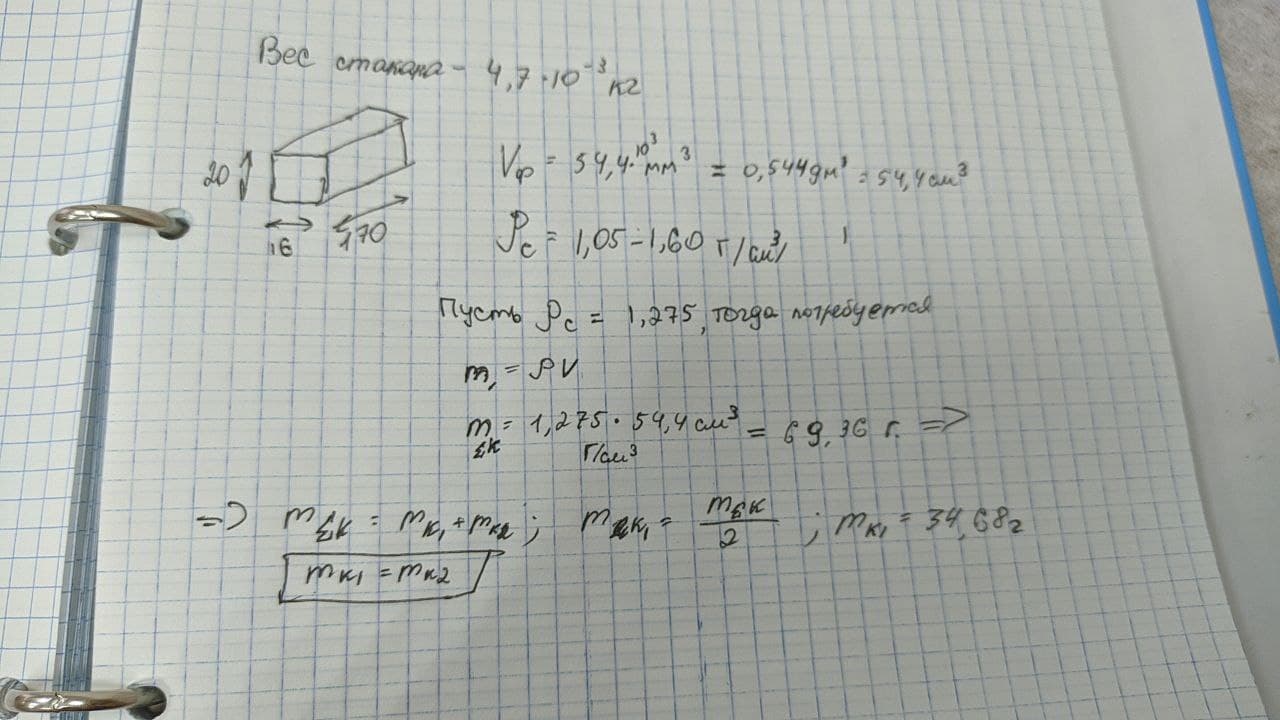 Вес стакана – 4,7·10⁻³ кг
20
16
170
Vф = 54,4·10³ мм³ = 0,544 дм³ = 54,4 см³
ρс = 1,05 – 1,60 г/см³
Пусть ρс = 1,275, тогда потребуется
m₁ = ρV
mΣк = 1,275 · 54,4 см³ = 69,36 г. =>
г/см³
=> mΣк = mк₁ + mк₂ ; mк₁ = mΣк / 2 ; mк₁ = 34,68 г
mк1 = mк2